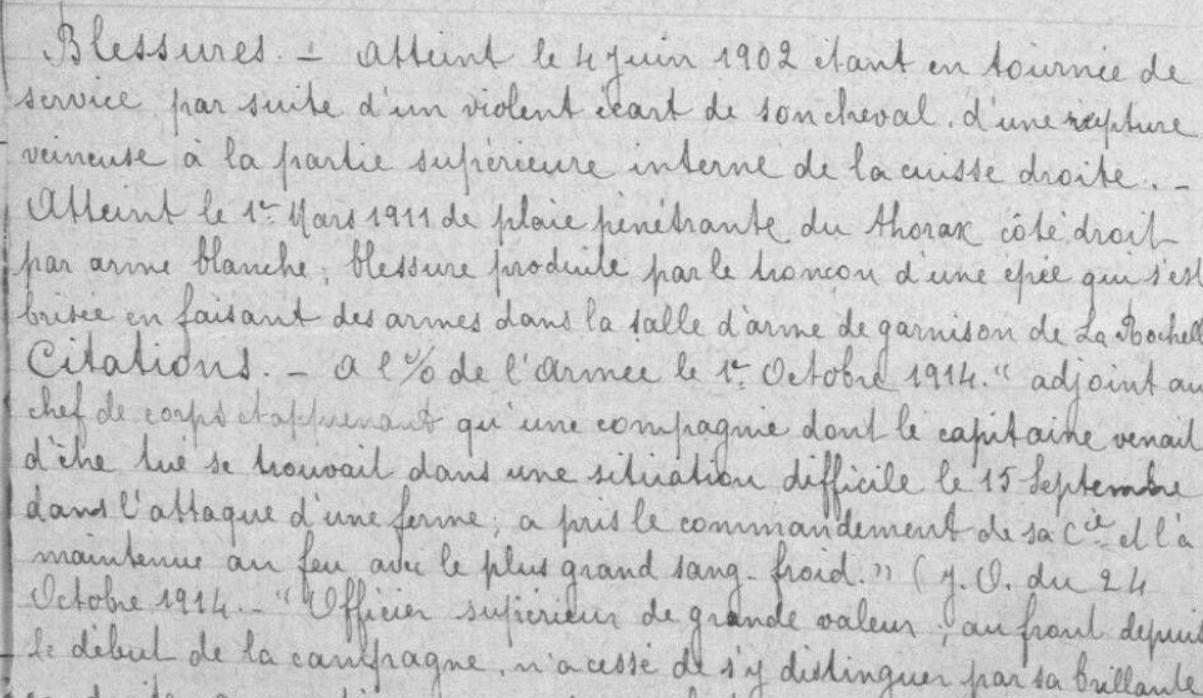 Blessures. - Atteint le 4 juin 1902 étant en tournée de
service par suite d'un violent écart de son cheval. d'une rupture
veineuse à la partie supérieure interne de la cuisse droite. -
Atteint le 1er Mars 1911 de plaie pénétrante du thorax côté droit
par arme blanche; blessure produite par le tronçon d'une épée qui s'est
brisée en faisant des armes dans la salle d'arme de garnison de La Rochell
Citations. - A l'% de l'Armée le 1er Octobre 1914. " adjoint au
chef de corps et apprenant qu'une compagnie dont le capitaine venait
d'être tué se trouvait dans une situation difficile le 15 Septembre
dans l'attaque d'une ferme; a pris le commandement de sa Cie et l'a
maintenue au feu avec le plus grand sang-froid." (J.O. du 24
Octobre 1914. - "Officier supérieur de grande valeur; au front depuis
le début de la campagne, n'a cessé de s'y distinguer par sa brillante